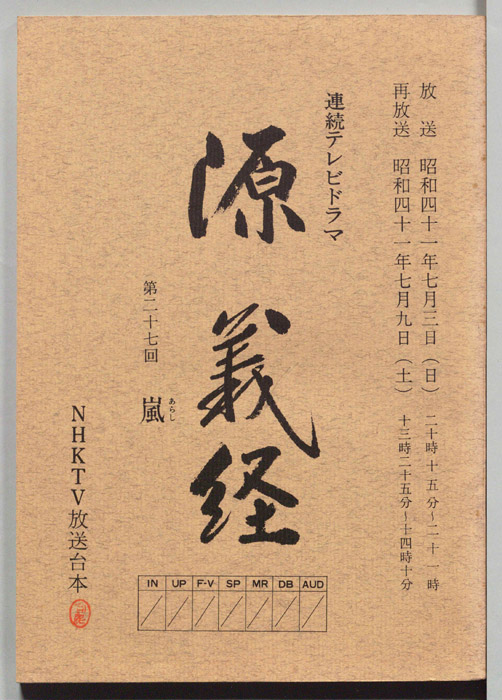 放送 昭和四十一年七月三日（日） 二十時十五分～二十一時
再放送 昭和四十一年七月九日（土） 十三時二十五分～十四時十分
連続テレビドラマ
源義経
第二十七回 嵐
あらし
NHKTV放送台本
IN UP F-V SP MR DB AUD